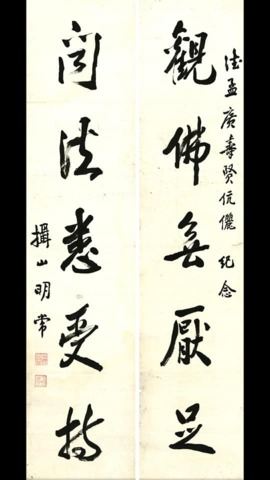 觀佛無厭足
孟廣壽賢伉儷 紀念
聞法悉受持
攝山明常